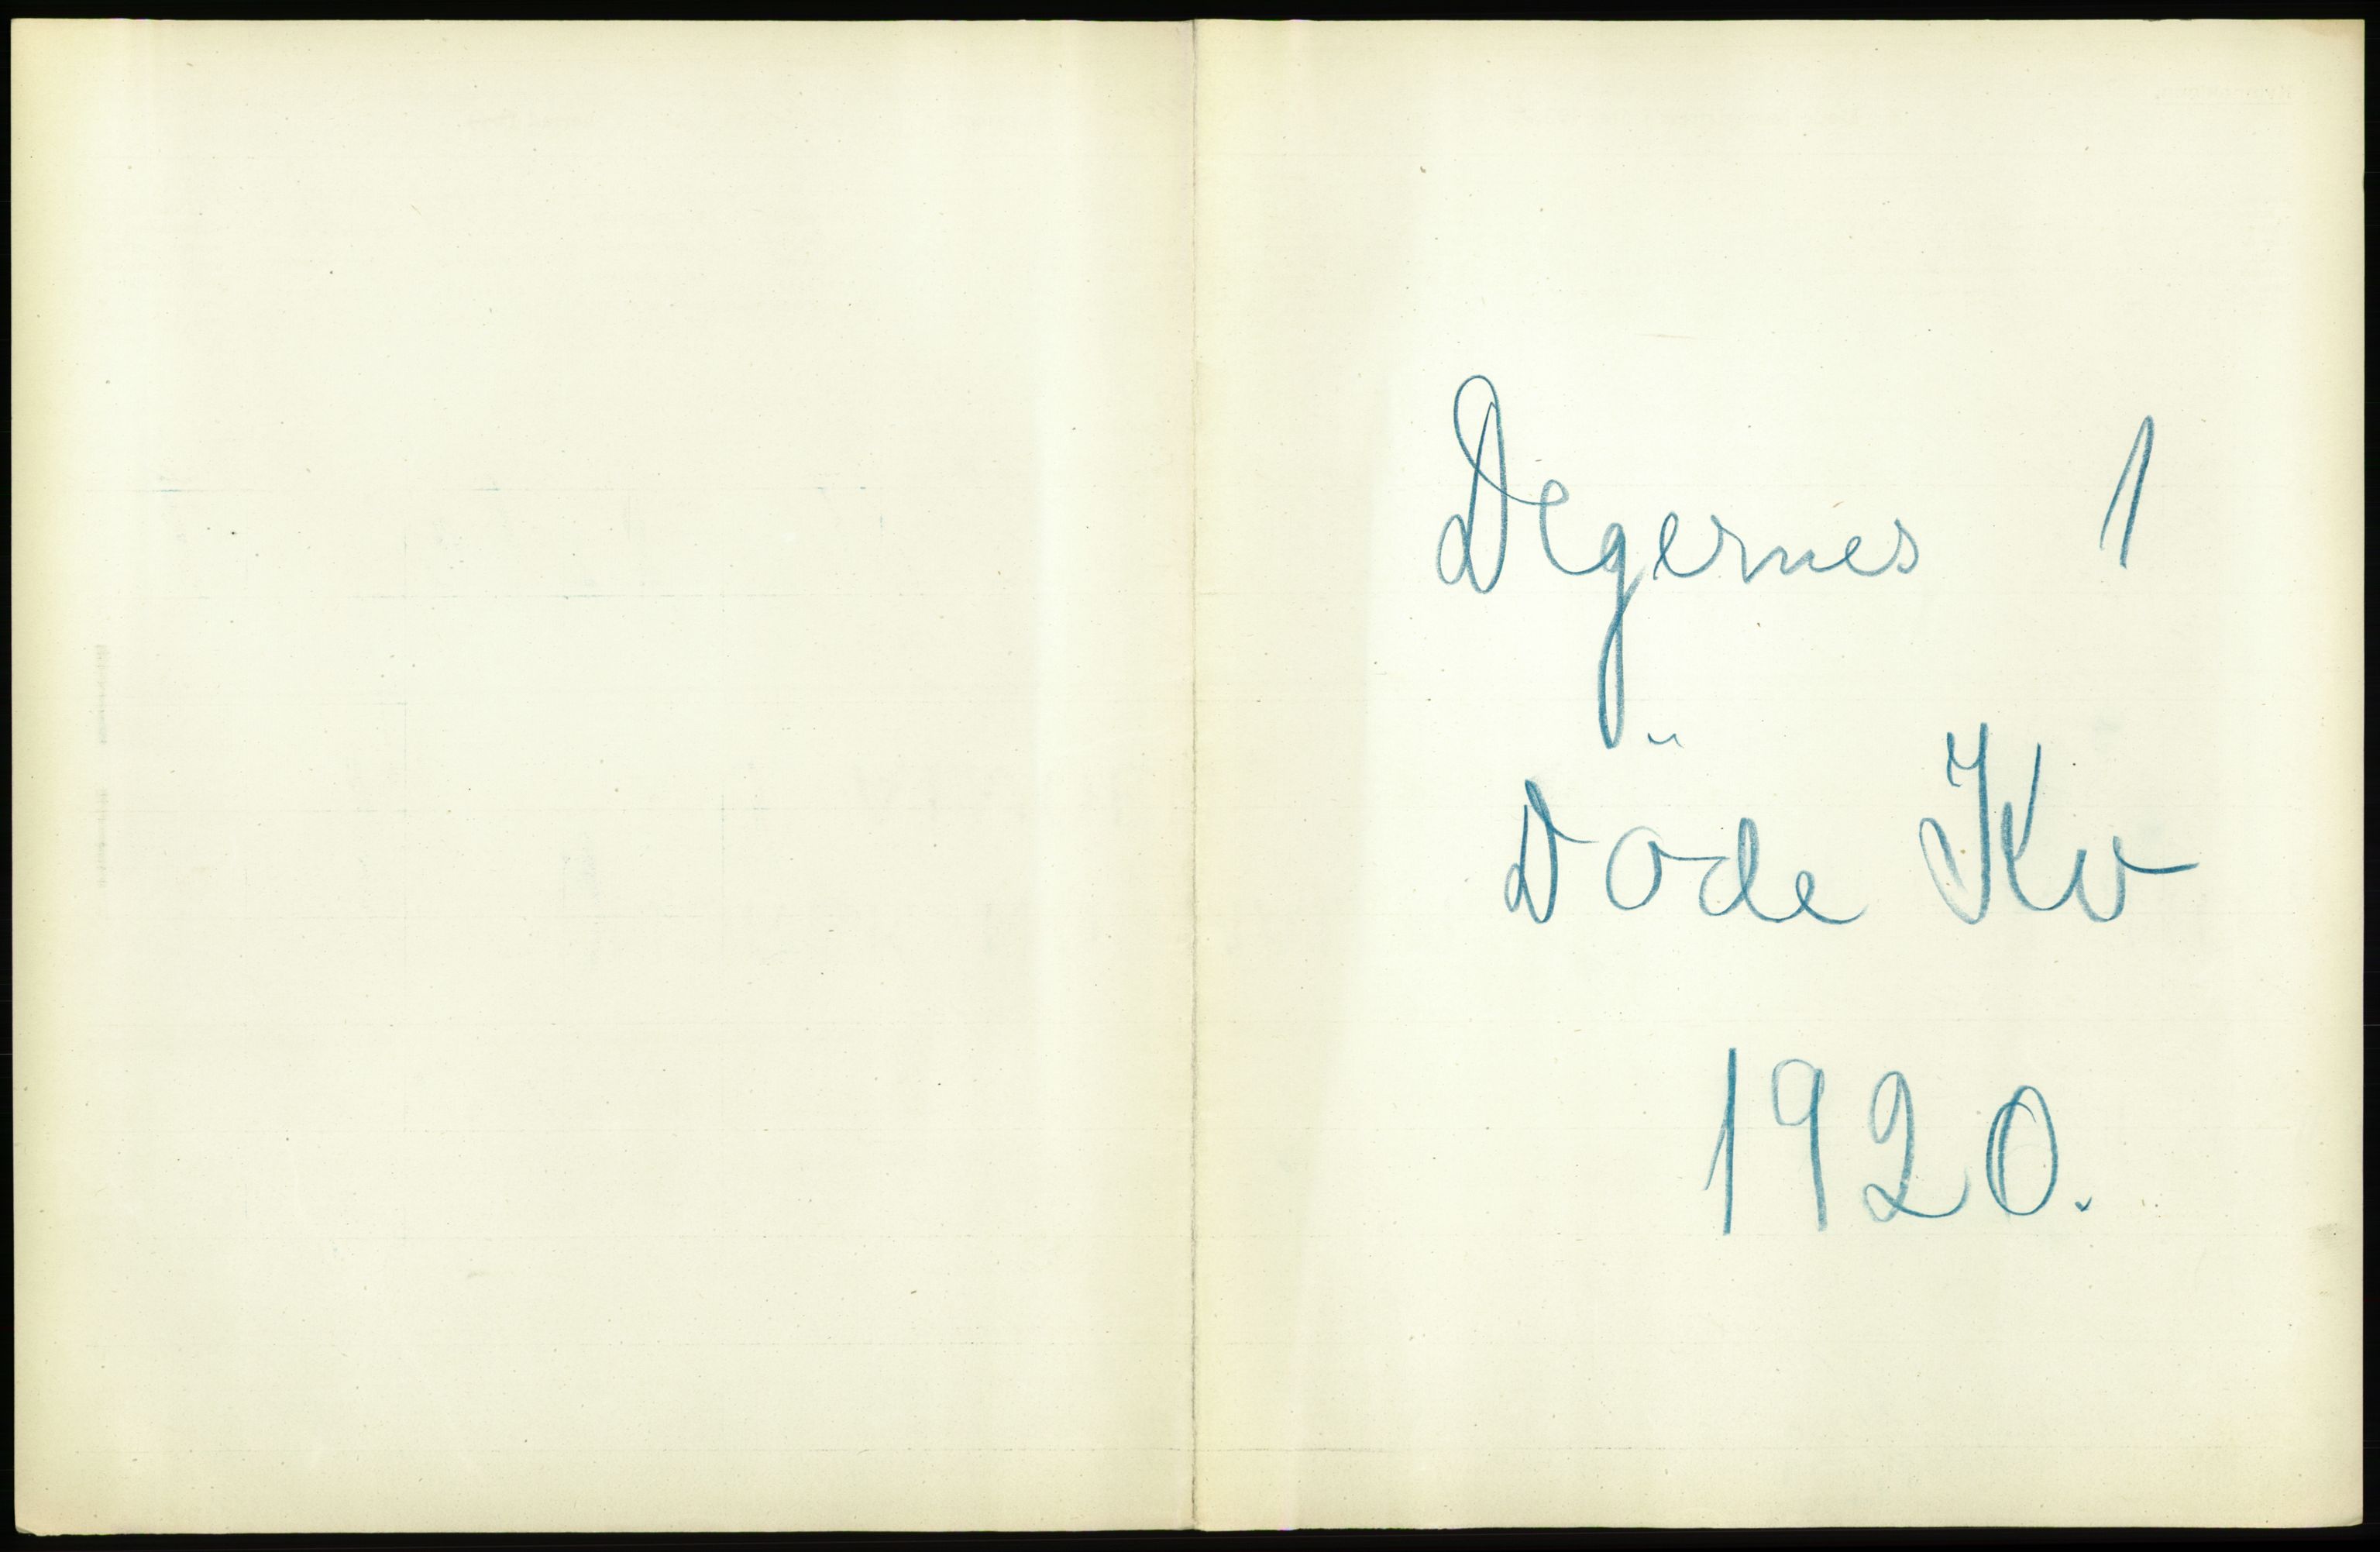 Degernes 1
Döde Kv
1920.